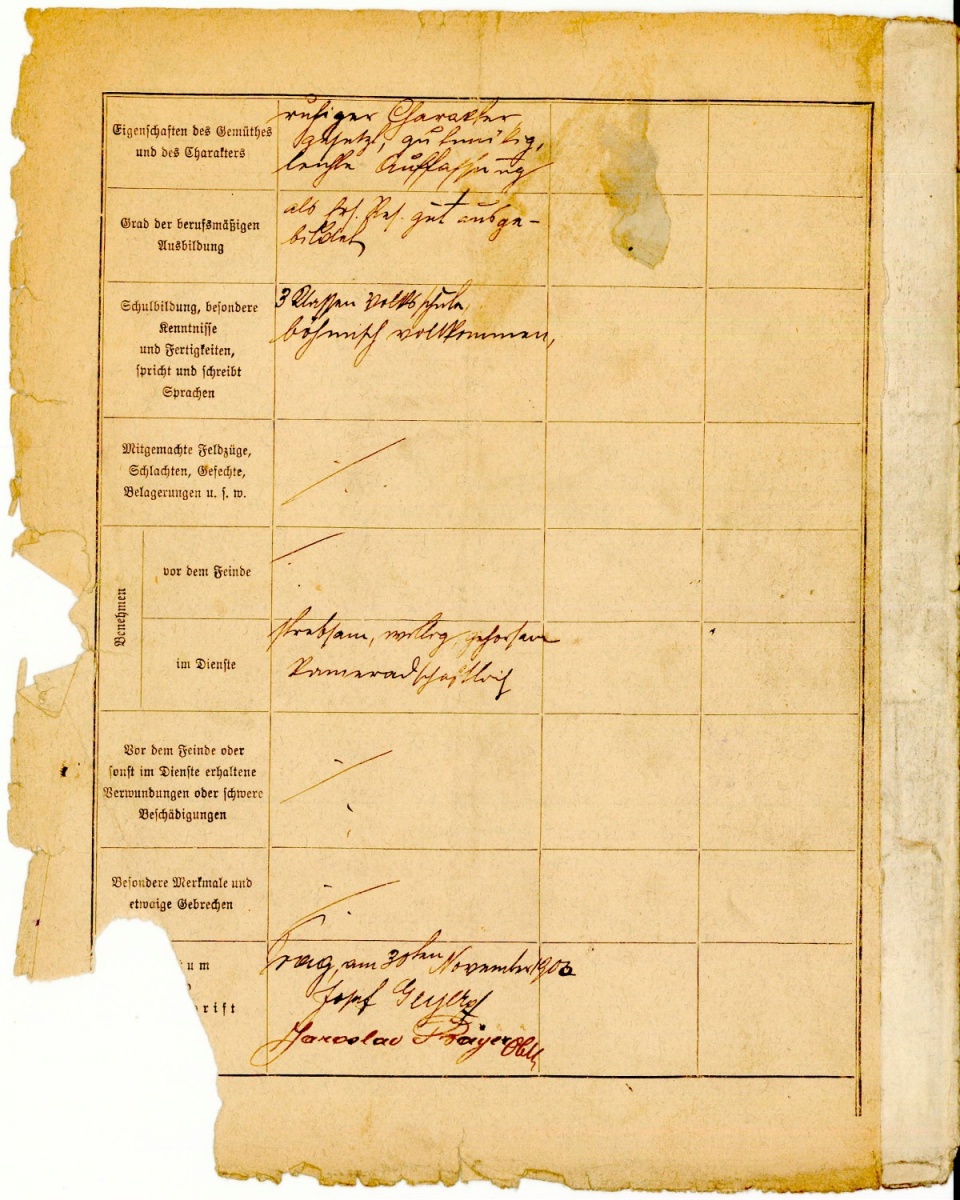 Eigenschaften des Gemüthes
und des Charakters
ruhiger Charakter
gesetzt, gutmütig,
leichte Auffassung
Grad der berufsmäßigen
Ausbildung
als Ers. Res. gut ausge-
bildet
Schulbildung, besondere
Kenntnisse
und Fertigkeiten,
spricht und schreibt
Sprachen
3 Klassen Volksschule,
böhmisch vollkommen,
Mitgemachte Feldzüge,
Schlachten, Gefechte,
Belagerungen u. s. w.
Benehmen
vor dem Feinde
im Dienste
strebsam, willig, gehorsam
kameradschaftlich
Vor dem Feinde oder
sonst im Dienste erhaltene
Verwundungen oder schwere
Beschädigungen
Besondere Merkmale und
etwaige Gebrechen
um
rift
Prag, am 30ten November
Josef
Jaroslav Oblt